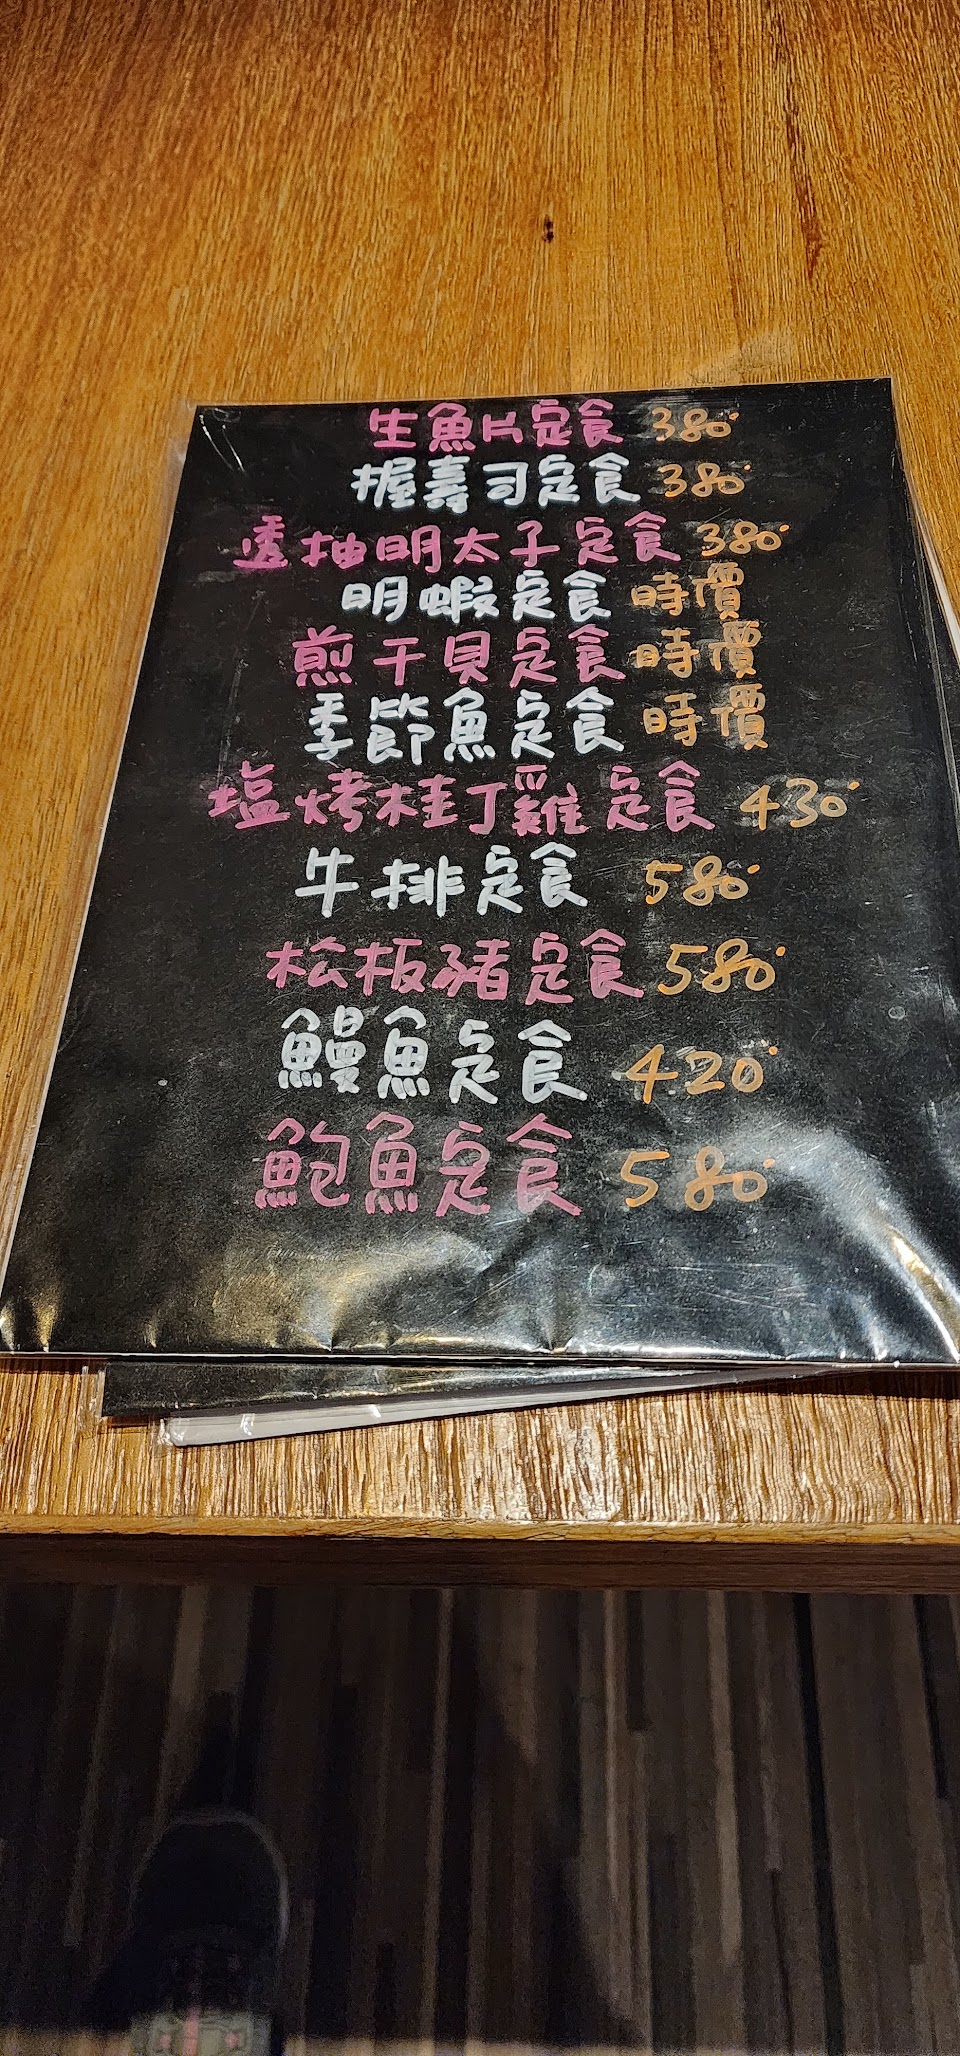 生魚片定食 380
握壽司定食 380
透抽明太子定食 380
明蝦定食 時價
煎干貝定食 時價
季節魚定食 時價
塩烤桂丁雞定食 430
牛排定食 580
松板豬定食 580
鰻魚定食 420
鮑魚定食 580